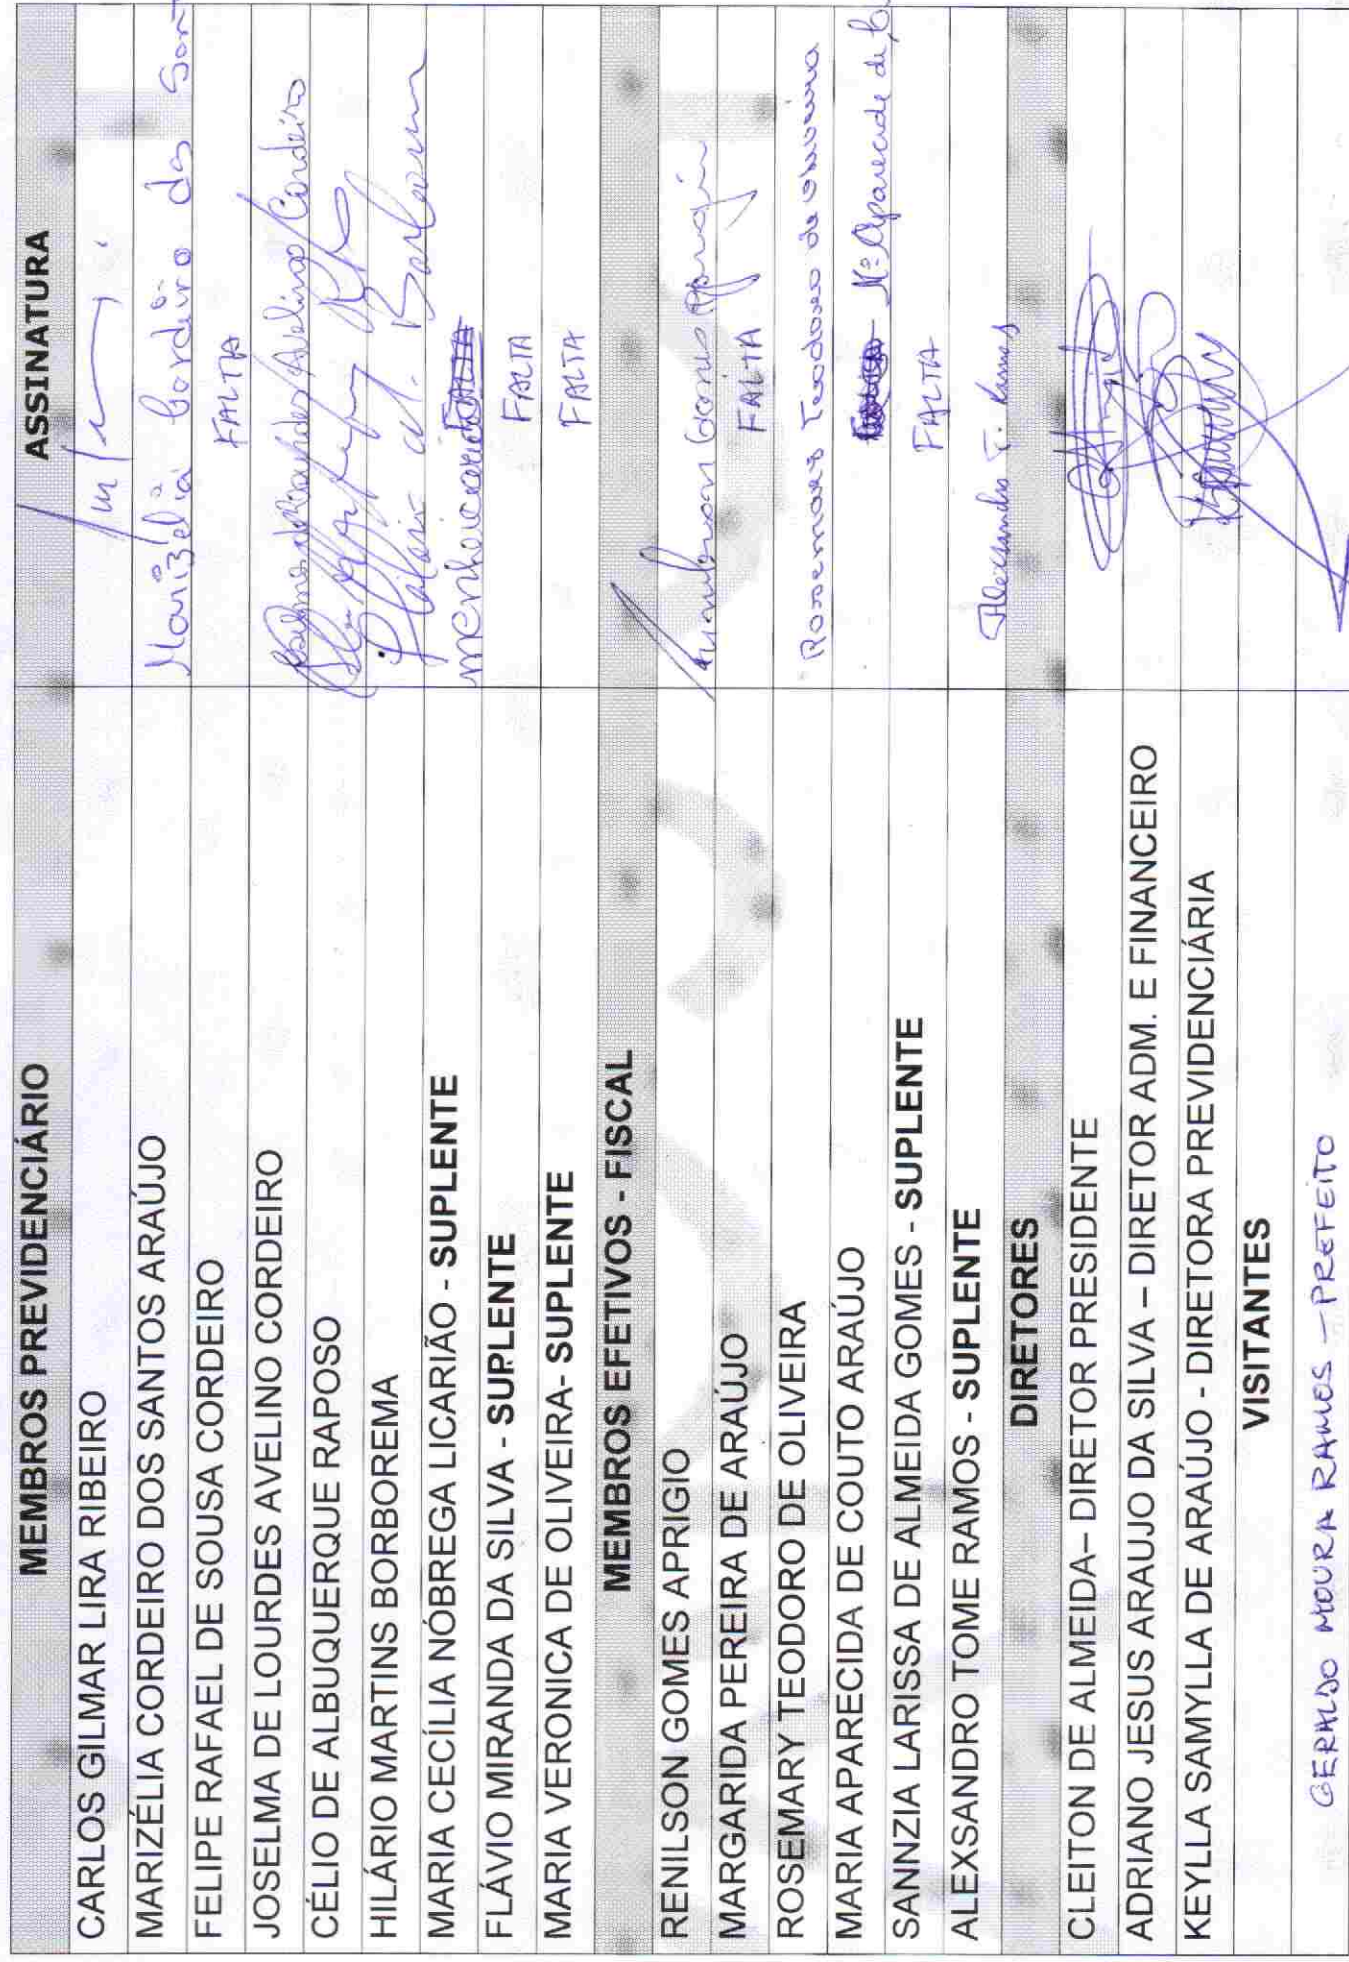 MEMBROS PREVIDENCIÁRIO ASSINATURA
CARLOS GILMAR LIRA RIBEIRO
MARIZÉLIA CORDEIRO DOS SANTOS ARAÚJO Marizélia Cordeiro dos Sant
FELIPE RAFAEL DE SOUSA CORDEIRO FALTA
JOSELMA DE LOURDES AVELINO CORDEIRO Joselma de Lourdes Avelino Cordeiro
CÉLIO DE ALBUQUERQUE RAPOSO
HILÁRIO MARTINS BORBOREMA Hilário M. Borborema
MARIA CECÍLIA NÓBREGA LICARIÃO - SUPLENTE
FLÁVIO MIRANDA DA SILVA - SUPLENTE FALTA
MARIA VERONICA DE OLIVEIRA- SUPLENTE FALTA
MEMBROS EFETIVOS - FISCAL
RENILSON GOMES APRIGIO Gomes Aprigio
MARGARIDA PEREIRA DE ARAÚJO FALTA
ROSEMARY TEODORO DE OLIVEIRA Rosemary Teodoro de Oliveira
MARIA APARECIDA DE COUTO ARAÚJO Mª Aparecida de C
SANNZIA LARISSA DE ALMEIDA GOMES - SUPLENTE FALTA
ALEXSANDRO TOME RAMOS - SUPLENTE Alexsandro T. Ramos
DIRETORES
CLEITON DE ALMEIDA– DIRETOR PRESIDENTE
ADRIANO JESUS ARAUJO DA SILVA – DIRETOR ADM. E FINANCEIRO
KEYLLA SAMYLLA DE ARAÚJO - DIRETORA PREVIDENCIÁRIA
VISITANTES
GERALDO MOURA RAMOS - PREFEITO